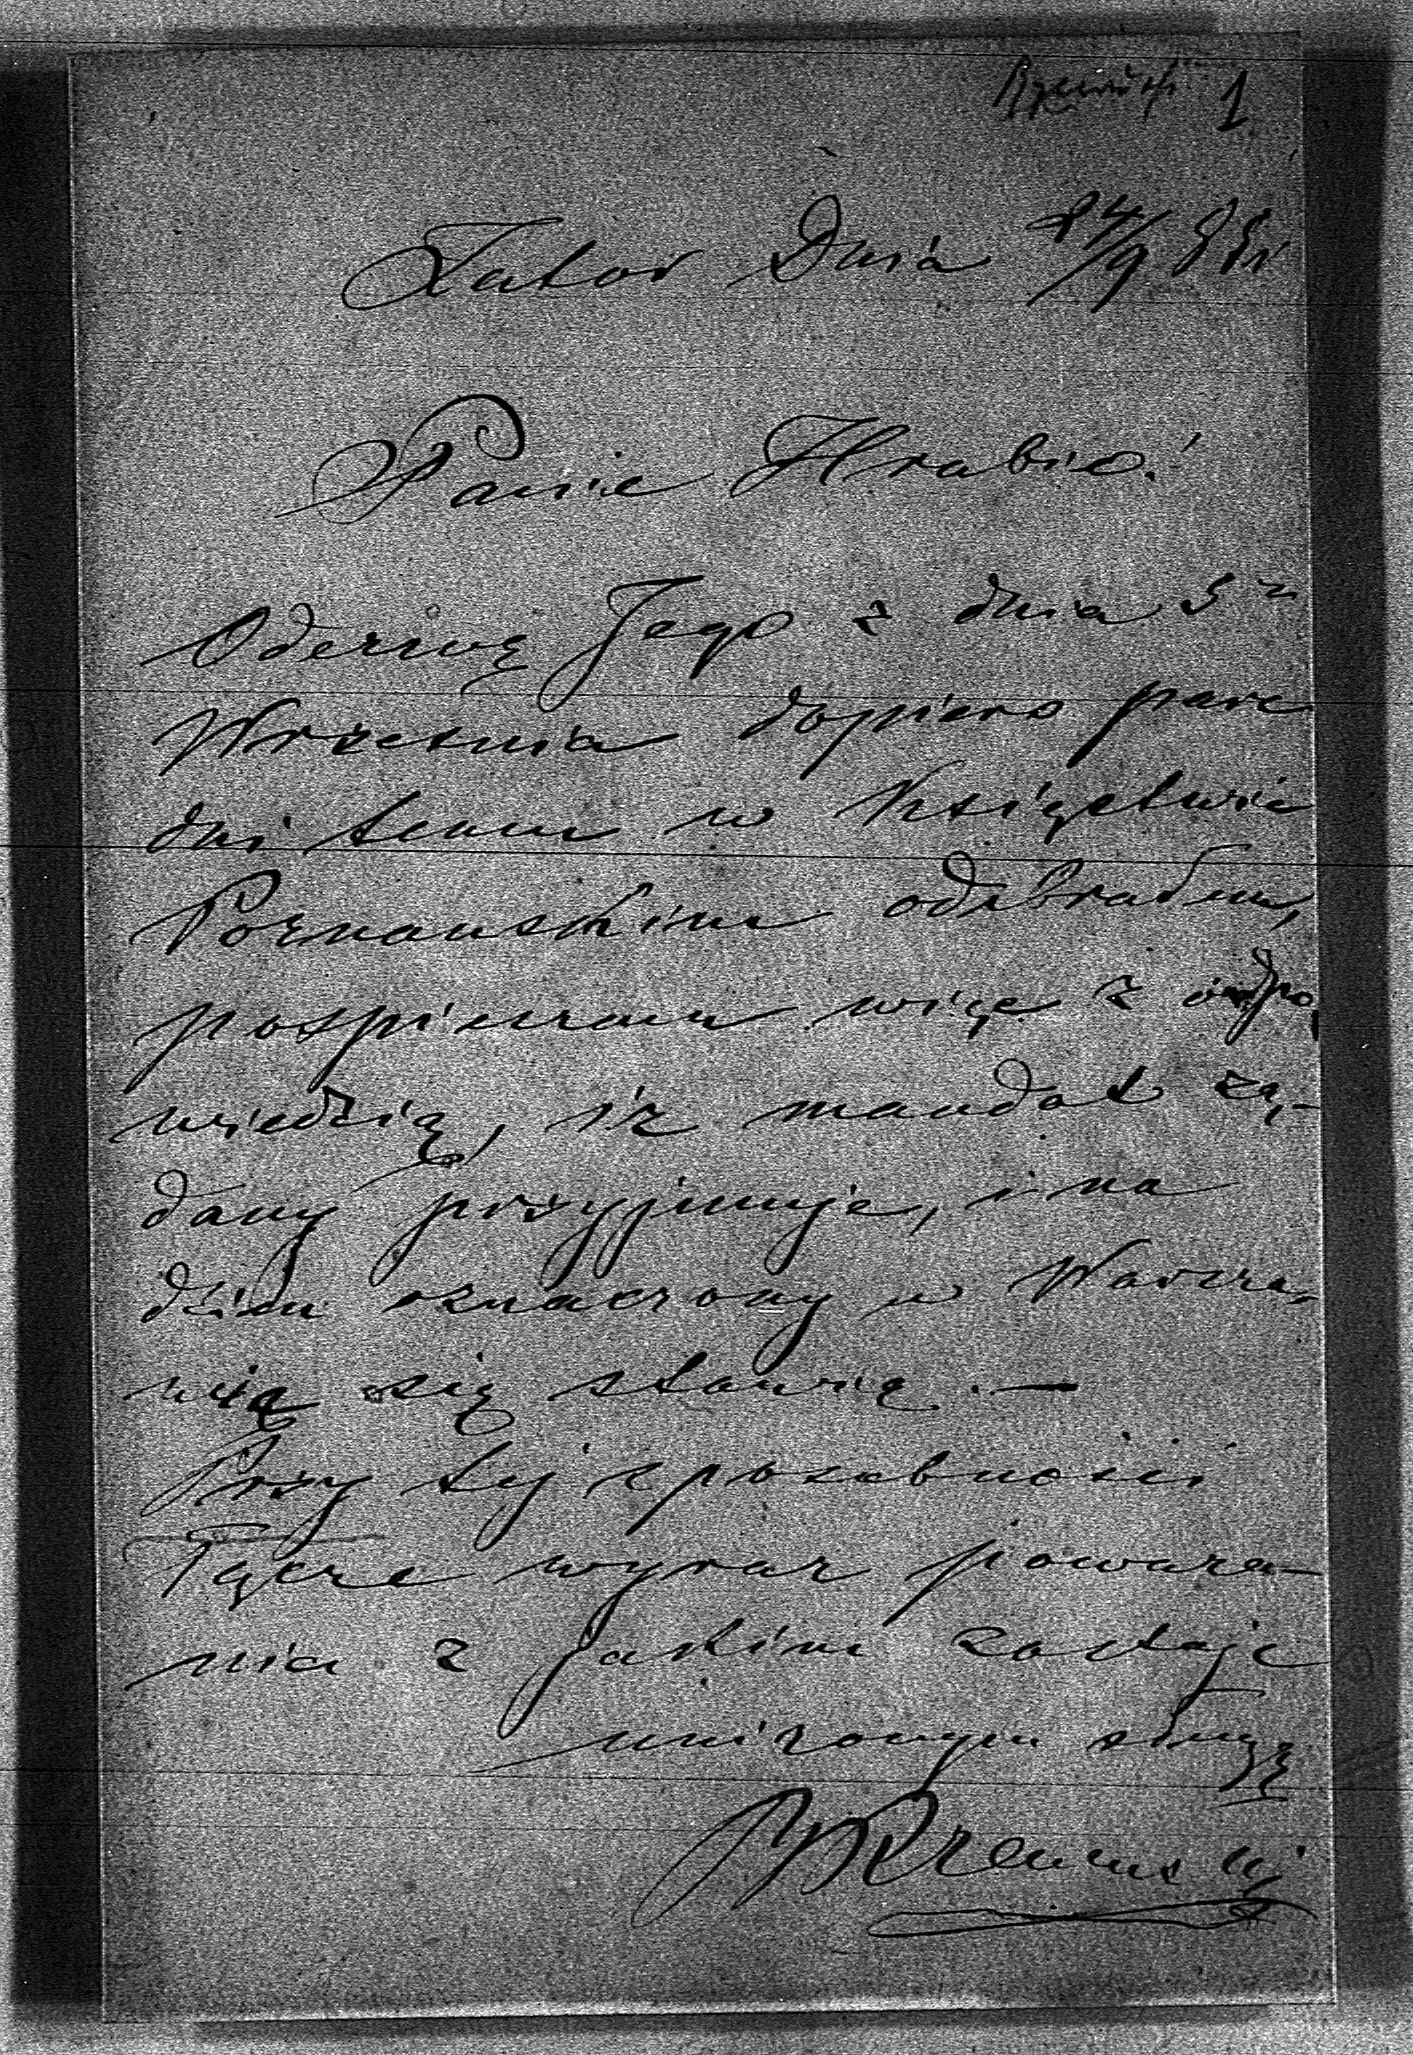 1
Zator Dnia 24/9 881
Panie Hrabio!
Oderwę Jego z dnia 5n
Września dopiero pare
dni temu w Księstwie
Poznańskim odebrałem,
pospieszam więc z odpo,
wiedzią, iż mandat żą-
dany przyjmuję, i na
dzień oznaczony w Warsza,
wią się stawię. —
Przy tej sposobności
Łączę wyraz poważa-
nia z jakim zostaję
uniżonym sługą